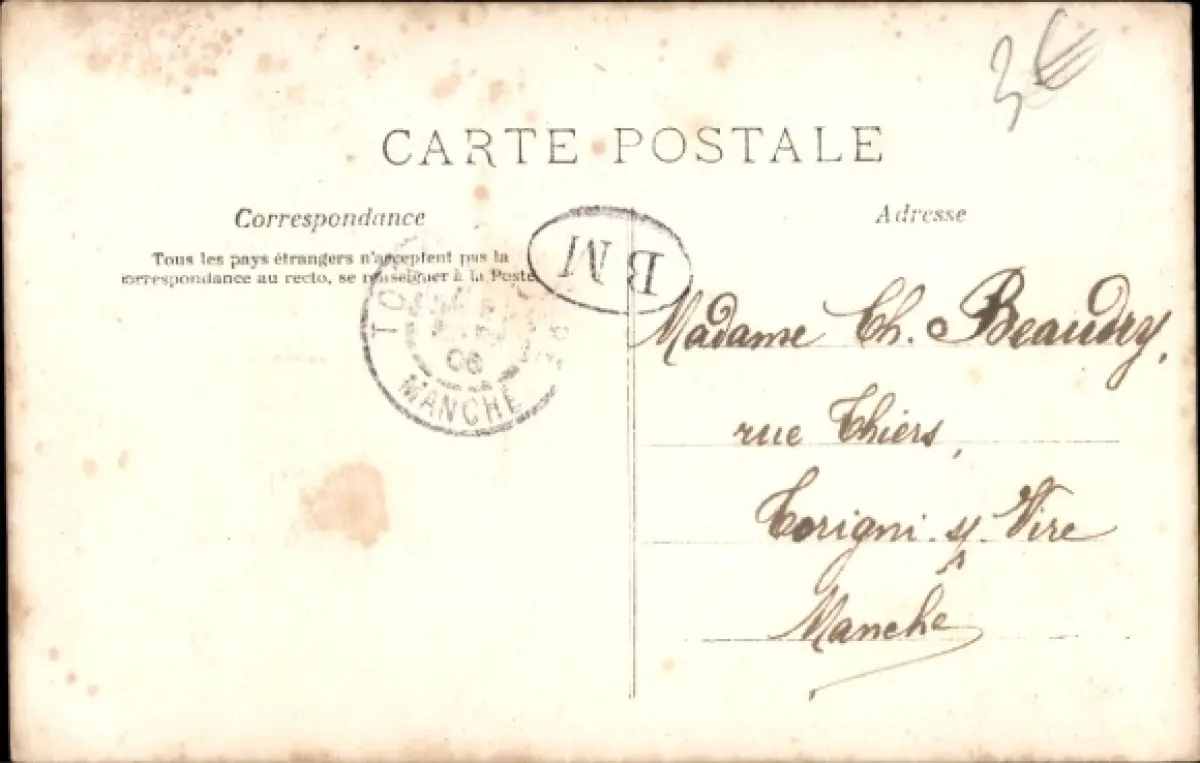 3€
CARTE POSTALE
Correspondance
Tous les pays étrangers n'acceptent pas la
correspondance au recto, se renseigner à la Poste
BM
06
MANCHE
Adresse
Madame Ch. Beaudry,
rue Thiers,
Torigni. s/. Vire
Manche